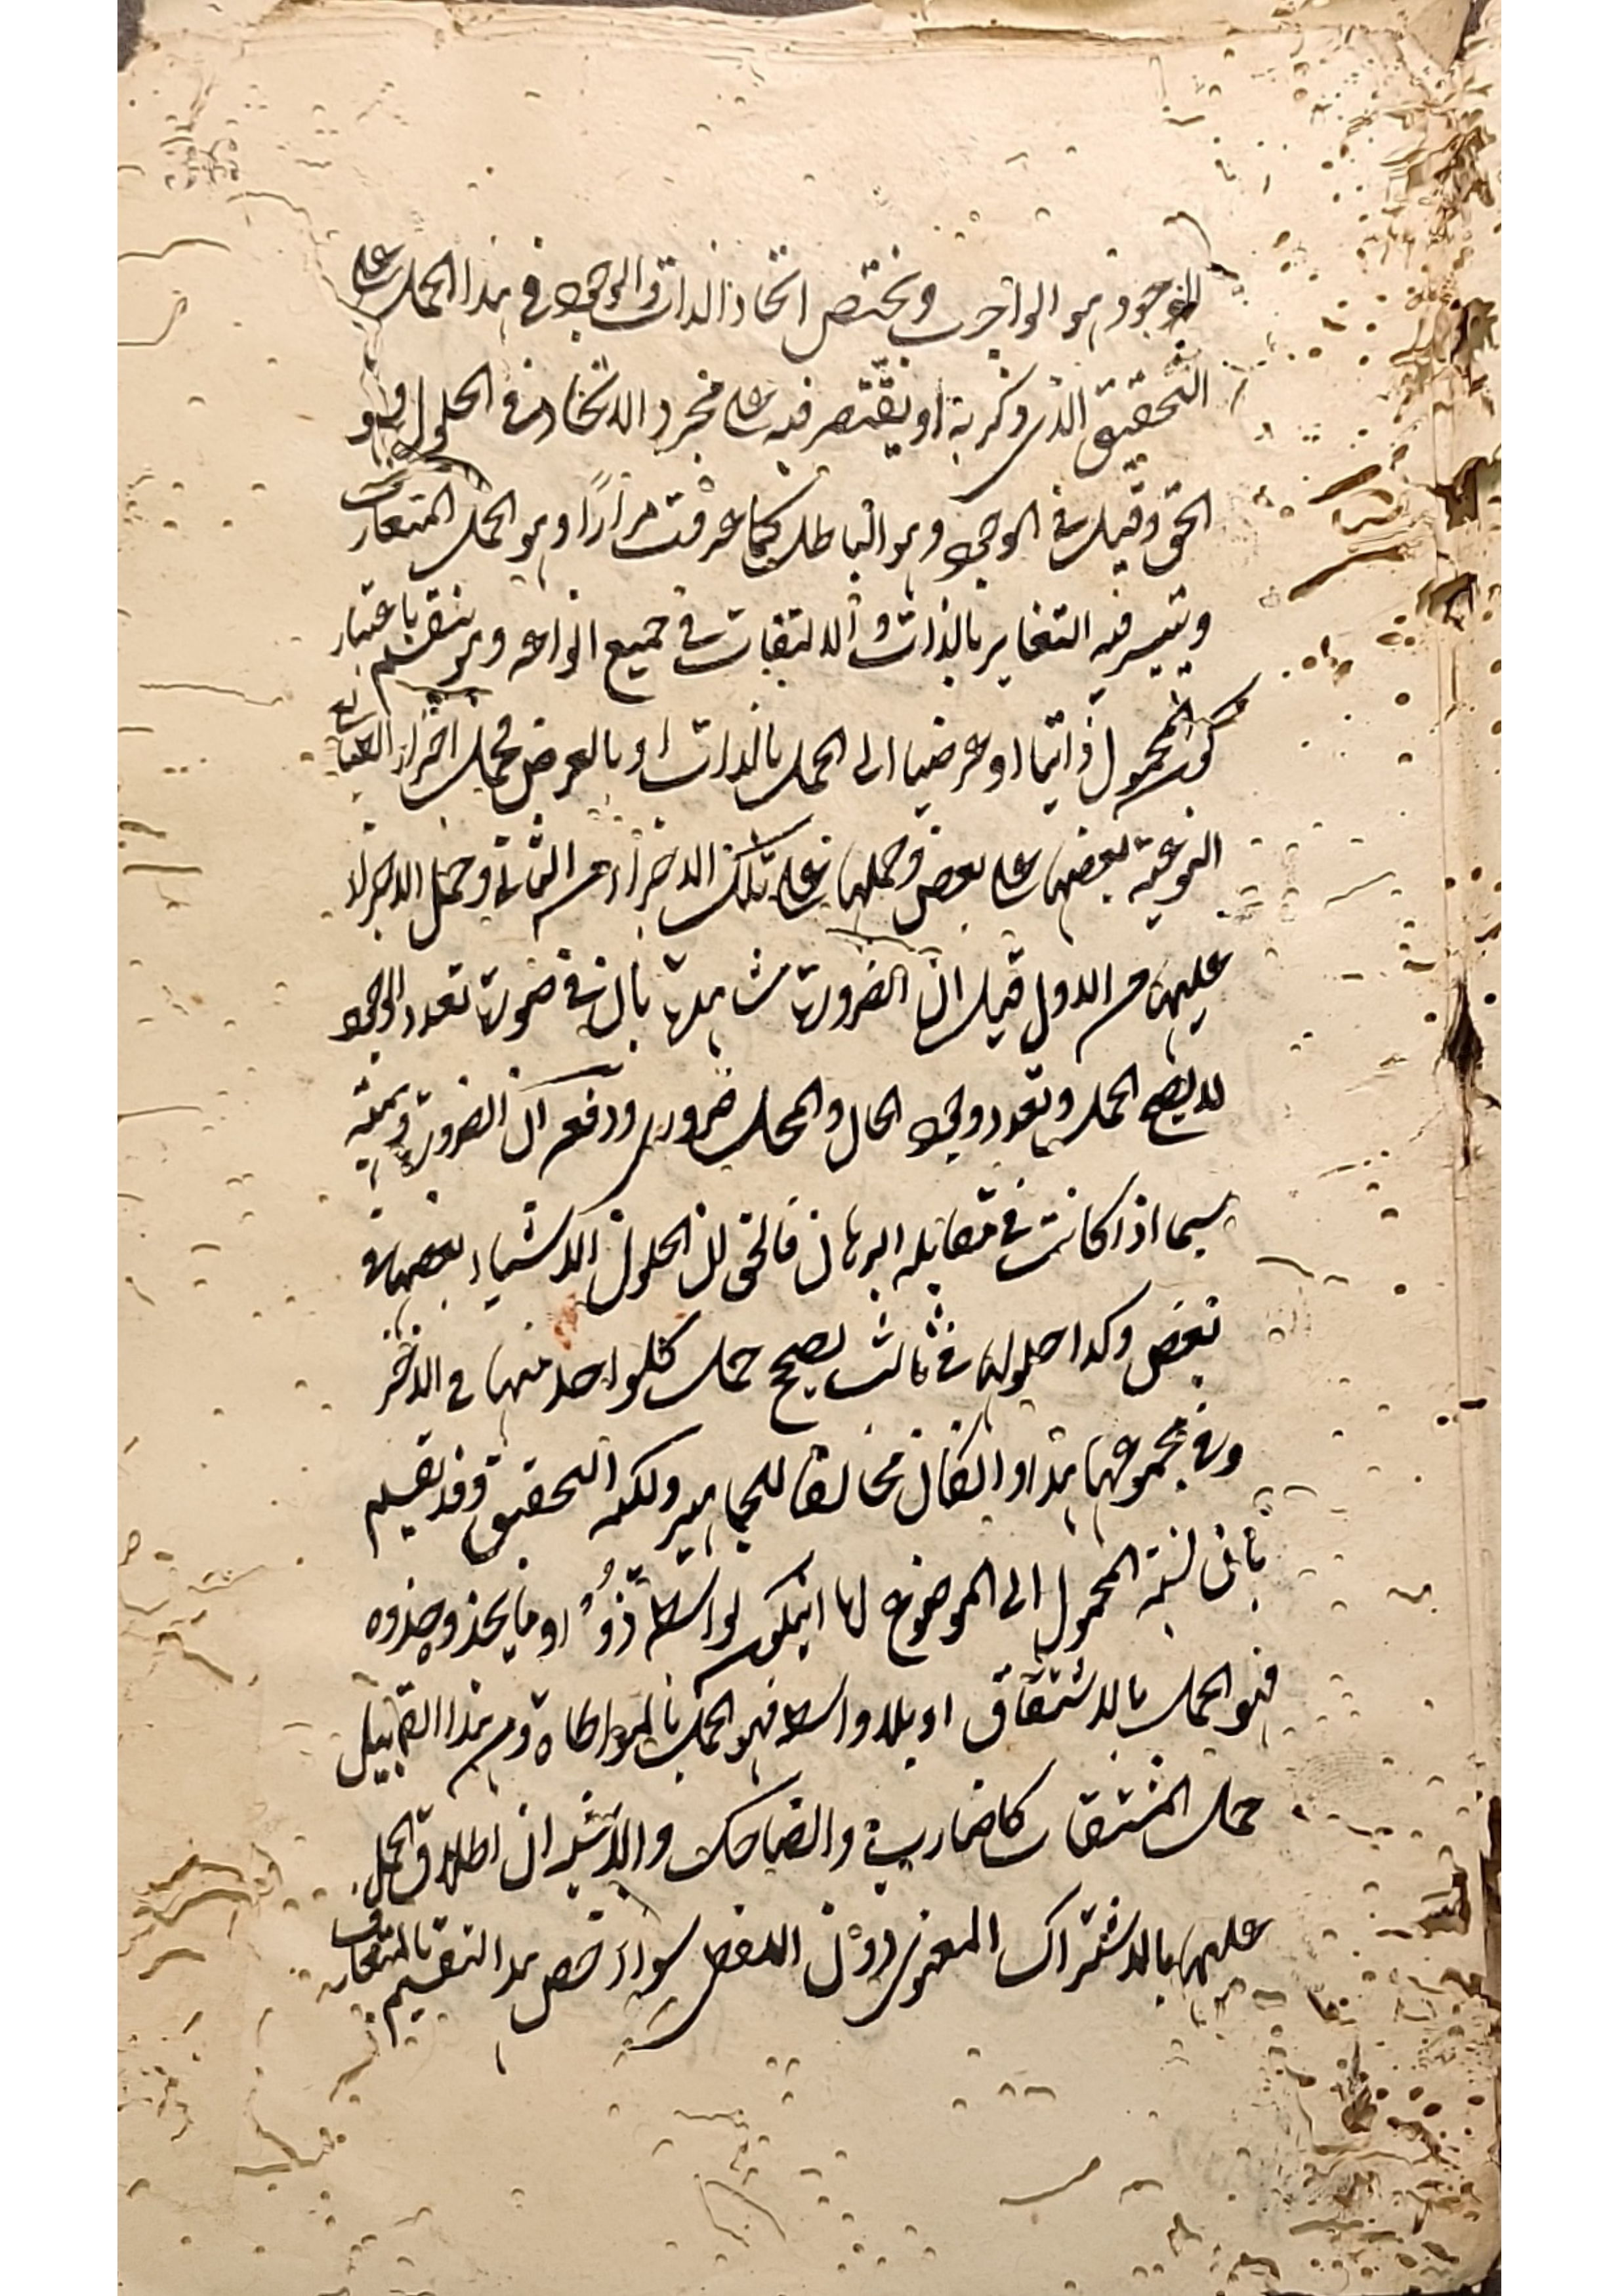 الموجود هو الواجب ويختص اتحاد الذات والوجود في هذا الحمل على
التحقيق الذى ذكر به او يقتصر فيه على مجرد الاتحاد في الحلول وهو
الحق وقيل في الوجود وهو الباطل كما عرفت مرارًا وهو الحمل المتعارف
ويتيسر فيه التغاير بالذات والالتفات في جميع انواعه وهو ينقسم باعتبار
كون المحمول ذاتيا او عرضيا الى الحمل بالذات او بالعرض فحمل اجزاء الطبائع
النوعية بعضها على بعض وحملها على تلك الاجزاء من الثانى وحمل الاجزاء
عليها من الاول قيل ان الضرورة شاهدة بان في صورة تعدد الوجود
لا يصح الحمل وتعدد وجود الحال والمحل ضرورى ودفعه ان الضرورة وهمية
سيما اذا كانت في مقابلة البرهان فالحق ان الحلول الاشياء بعضها في
بعض وكذا حلولها في ثالث يصحح حمل كلواحد منها في الاخر
وفي مجموعها هذا وان كان مخالفا للجماهير ولكنه التحقيق وقد يقسم
بان نسبة المحمول الى الموضوع اما ان يكون بواسطة ذو او ما يحذو حذوه
فهو الحمل بالاشتقاق او بلا واسطة فهو الحمل بالمواطاة ومن هذا القبيل
حمل المشتقات كالضارب والضاحك والاشبه ان اطلاق الحمل
عليها بالاشتراك المعنوى دون اللفظى سواء خص هذا التقسيم بالمتعارف